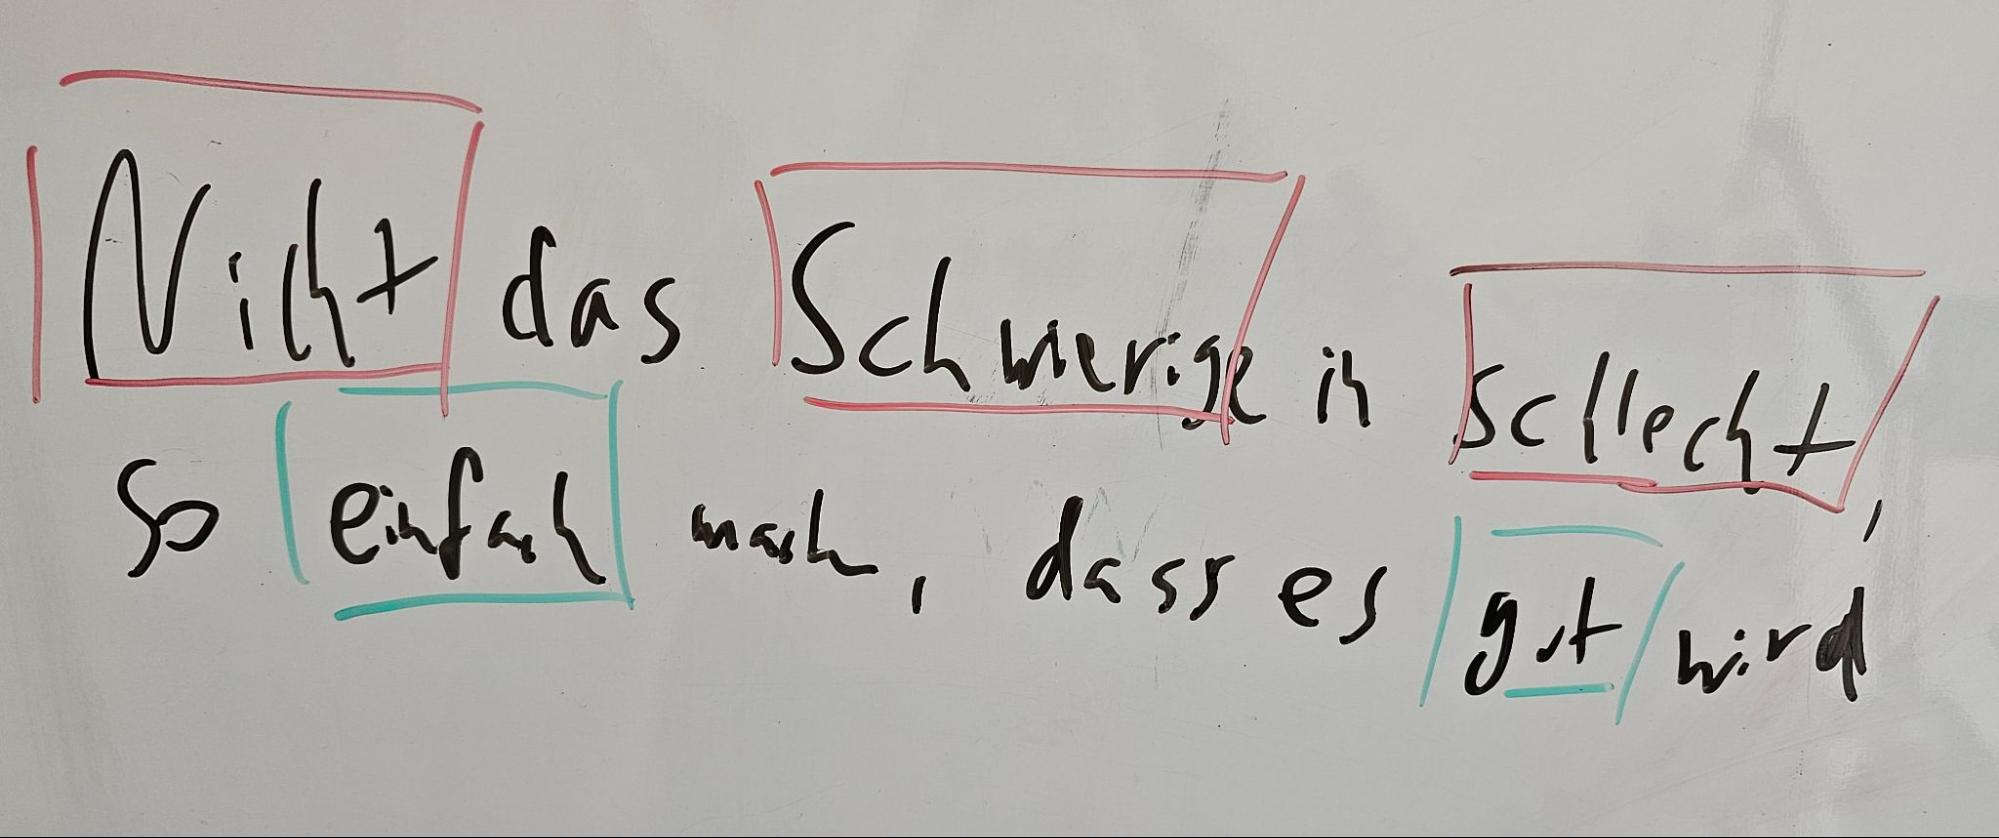 Nicht das Schwierige in schlecht,
so einfach mach, dass es gut wird